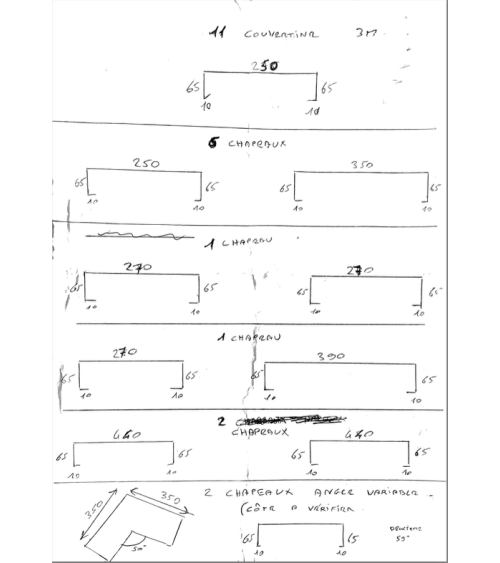 11 COUVERTINE 3M
250
65 65
10 10
5 CHAPEAUX
250 350
65 65 65 65
10 10 10 10
1 CHAPEAU
270 270
65 65 65 65
10 10 10 10
1 CHAPEAU
270 390
65 65 65 65
10 10 10 10
2
CHAPEAUX
440 440
65 65 65 65
10 10 10 10
2 CHAPEAUX ANGLE VARIABLE
350 350
(CÔTE A VÉRIFIER
65 65
10 10